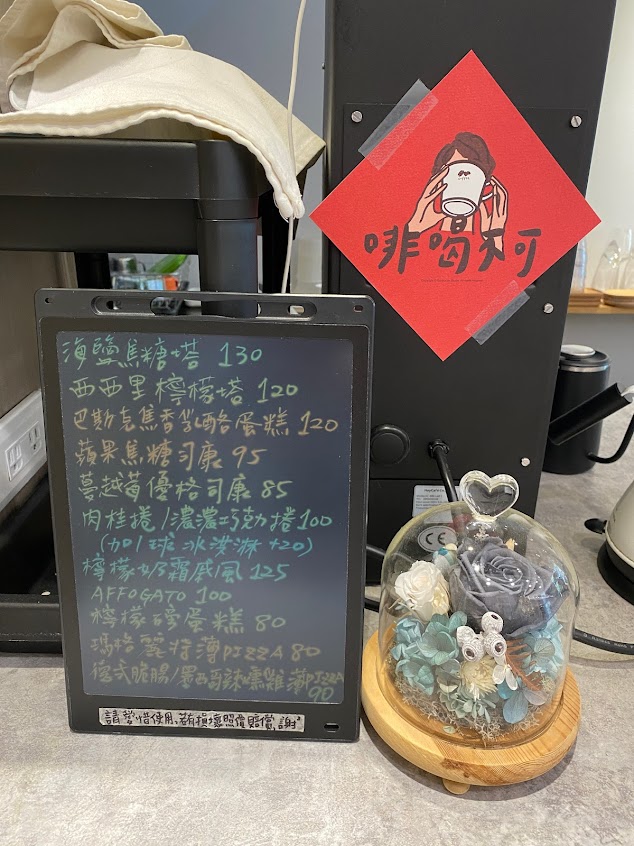 啡喝不可
海鹽焦糖塔 130
西西里檸檬塔 120
巴斯克焦香乳酪蛋糕 120
蘋果焦糖司康 95
蔓越莓優格司康 85
肉桂捲/濃濃巧克力捲 100
(加1球冰淇淋 +20)
檸檬奶霜戚風 125
AFFOGATO 100
檸檬磅蛋糕 80
瑪格麗特薄PIZZA 80
德式脆腸/墨西哥辣嫩雞薄PIZZA
90
請愛惜使用,若有損壞照價賠償,謝
CE